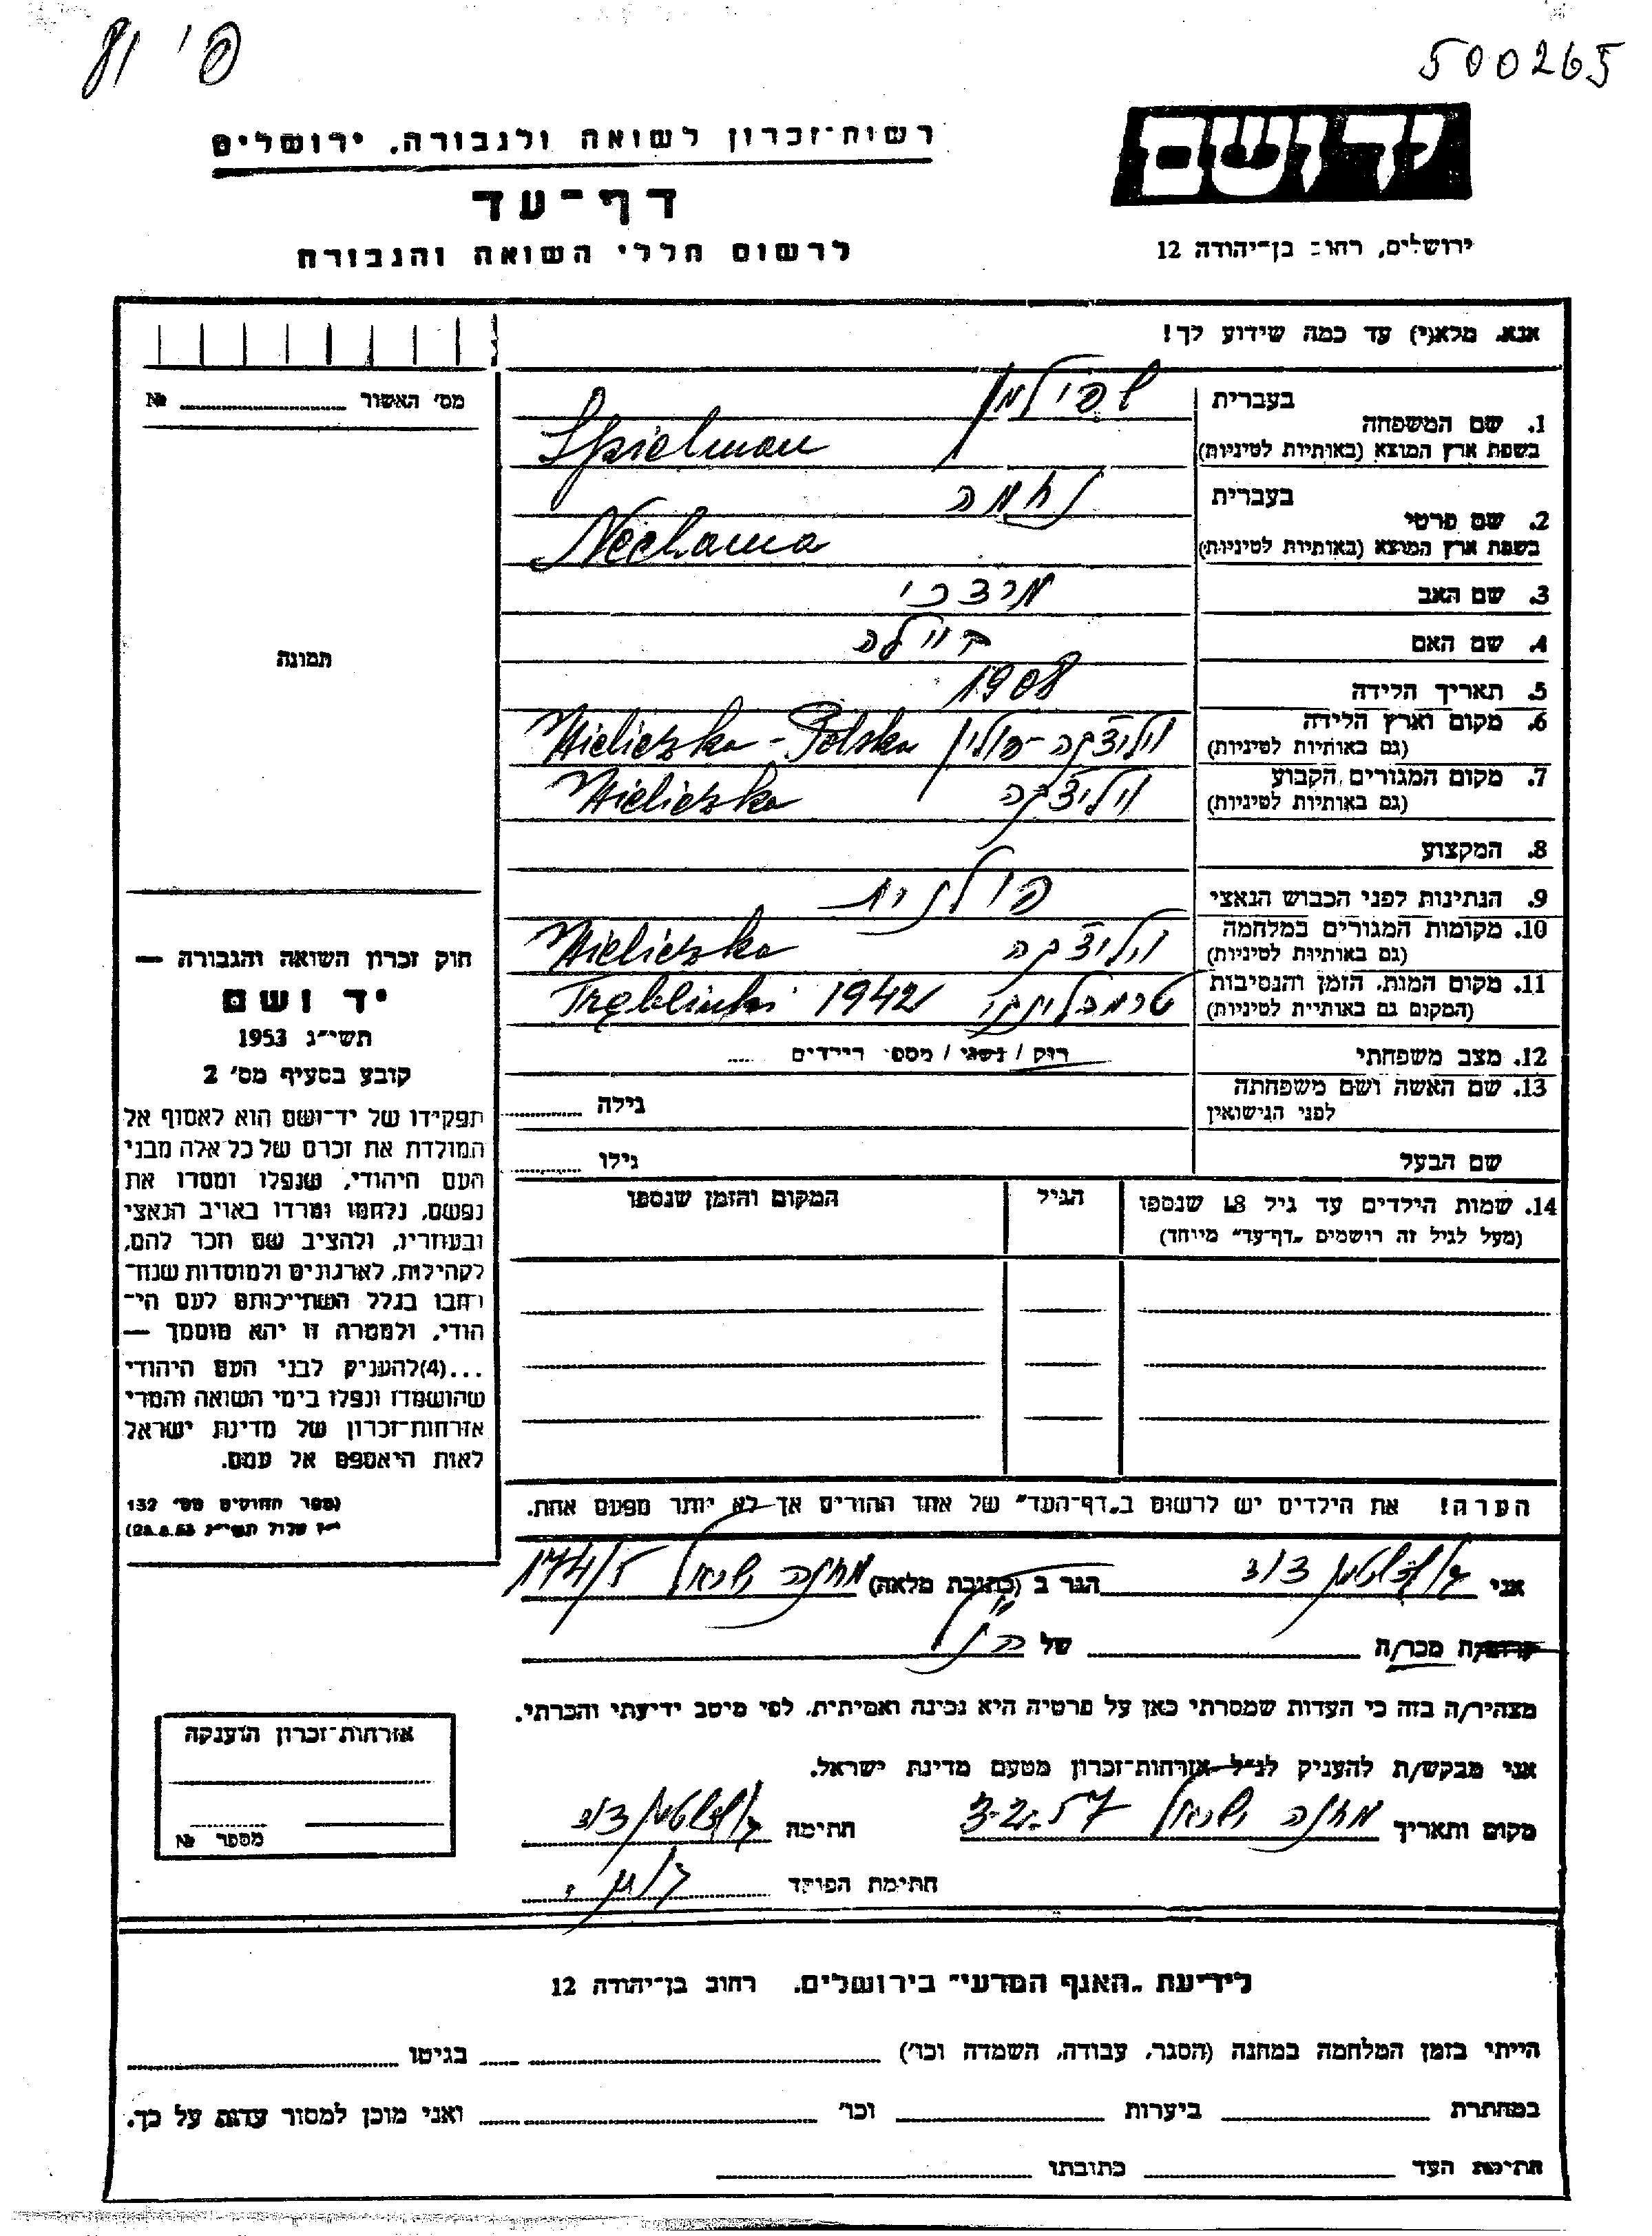 500265
פ' 78
יד ושם
רשות־זכרון לשואה ולגבורה, ירושלים
דף־עד
לרשום חללי השואה והגבורה
ירושלים, רחוב בן־יהודה 12
אנא, מלא(י) עד כמה שידוע לך!
מס' האשור №
תמונה
1. שם המשפחה
בעברית שפילמן
בשפת ארץ המוצא (באותיות לטיניות) Spielman
2. שם פרטי
בעברית נחמה
בשפת ארץ המוצא (באותיות לטיניות) Nechama
3. שם האב מרדכי
4. שם האם ביילה
5. תאריך הלידה 1908
6. מקום וארץ הלידה
(גם באותיות לטיניות) וליצ'קה - פולין Wieliczka - Polska
7. מקום המגורים הקבוע
(גם באותיות לטיניות) וליצ'קה Wieliczka
8. המקצוע
9. הנתינות לפני הכבוש הנאצי פולנית
10. מקומות המגורים במלחמה
(גם באותיות לטיניות) וליצ'קה Wieliczka
11. מקום המות, הזמן והנסיבות
(המקום גם באותיות לטיניות) טרמבלינקי Tręblinki 1942
12. מצב משפחתי רוק / נשוי / מספר הילדים
13. שם האשה ושם משפחתה
לפני הנישואין גילה
שם הבעל גילו
14. שמות הילדים עד גיל 18 שנספו
(מעל לגיל זה רושמים „דף־עד" מיוחד)
הגיל
המקום והזמן שנספו
הערה! את הילדים יש לרשום ב„דף־העד" של אחד ההורים אך לא יותר מפעם אחת.
חוק זכרון השואה והגבורה —
יד ושם
תשי"ג 1953
קובע בסעיף מס' 2
תפקידו של יד־ושם הוא לאסוף אל
המולדת את זכרם של כל אלה מבני
העם היהודי, שנפלו ומסרו את
נפשם, נלחמו ומרדו באויב הנאצי
ובעוזריו, ולהציב שם וזכר להם,
לקהילות, לארגונים ולמוסדות שנח־
רבו בגלל השתייכותם לעם הי־
הודי, ולמטרה זו יהא מוסמך —
...(4) להעניק לבני העם היהודי
שהושמדו ונפלו בימי השואה והמרי
אזרחות־זכרון של מדינת ישראל
לאות היאספם אל עמם.
(ספר החוקים מס' 132
י"ז אלול תשי"ג 28.8.53)
אני הגר ב (כתובת מלאה) מחנה ישראל 174/5
קרוב/ת מכר/ה של הנ"ל
מצהיר/ה בזה כי העדות שמסרתי כאן על פרטיה היא נכונה ואמיתית, לפי מיטב ידיעתי והכרתי.
אני מבקש/ת להעניק לנ"ל אזרחות־זכרון מטעם מדינת ישראל.
מקום ותאריך מחנה ישראל 3.2.57 חתימה
חתימת הפוקד
אזרחות־זכרון הוענקה
מספר №
לידיעת „האגף המדעי" בירושלים, רחוב בן־יהודה 12
הייתי בזמן המלחמה במחנה (הסגר, עבודה, השמדה וכו') בגיטו
במחתרת ביערות וכו' ואני מוכן למסור עדות על כך.
חתימת העד כתובתו